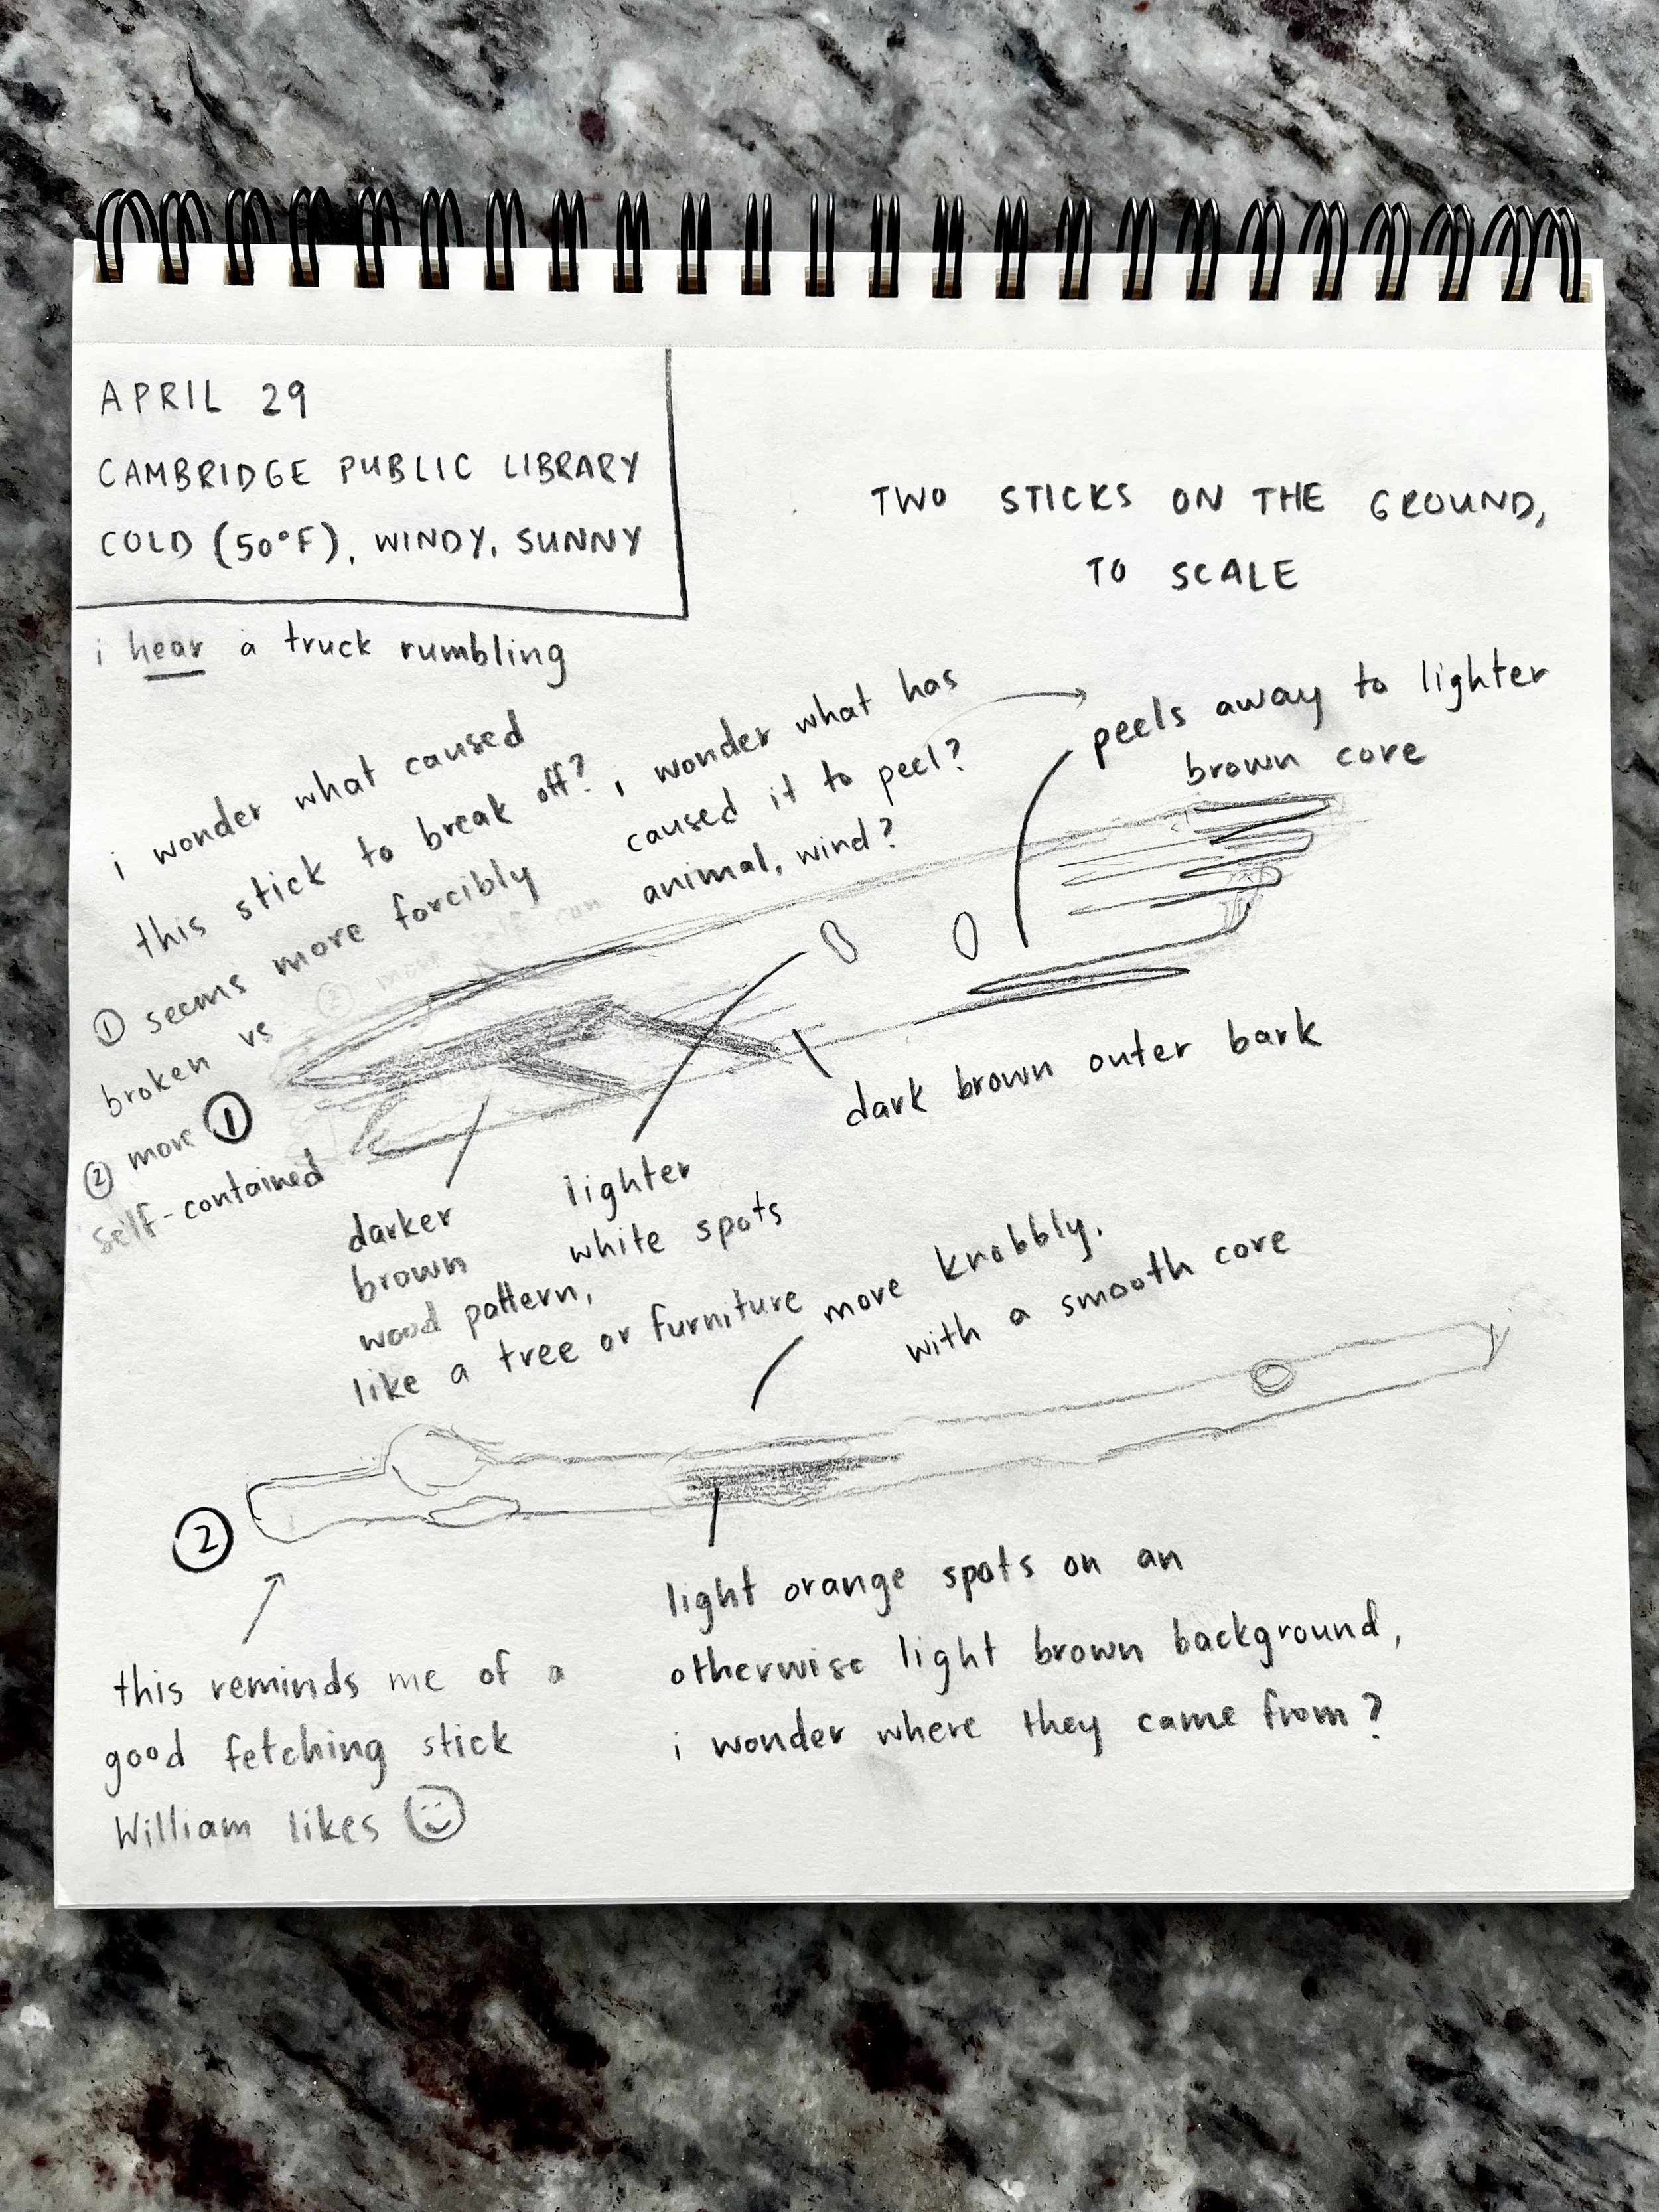 APRIL 29
CAMBRIDGE PUBLIC LIBRARY
COLD (50°F), WINDY, SUNNY
TWO STICKS ON THE GROUND,
TO SCALE
i hear a truck rumbling
i wonder what caused
this stick to break off?,
wonder what has
caused it to peel?
animal, wind?
peels away to lighter
brown core
① seems more forcibly
broken vs
② more
self-contained
② more self-con
①
dark brown outer bark
darker
brown
wood pattern,
like a tree or furniture
lighter
white spots
more knobbly,
with a smooth core
②
light orange spots on an
otherwise light brown background,
i wonder where they came from?
this reminds me of a
good fetching stick
William likes